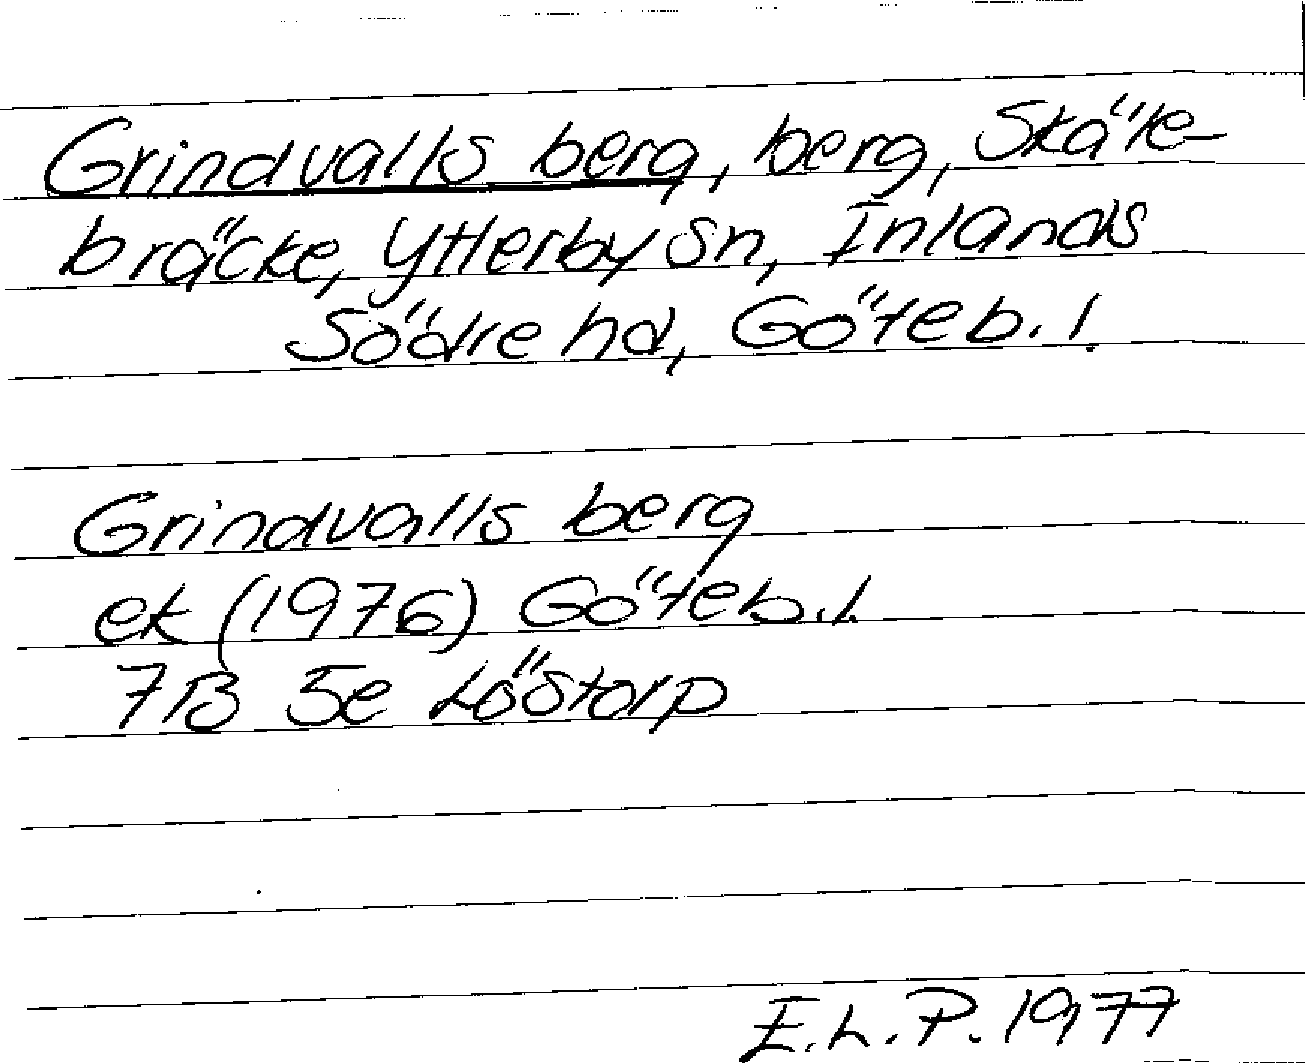 Grindvalls berg, berg, Skäle-
bräcke, Ytterby sn, Inlands
Södre hd, Göteb. l.
Grindvalls berg
ek (1976) Göteb. l.
7B 5e Löstorp
E.L.P. 1977